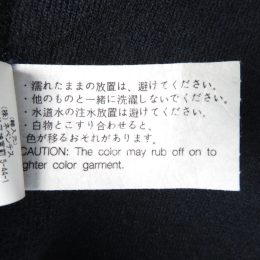 ・濡れたままの放置は、避けてください。
・他のものと一緒に洗濯しないでください。
・水道水の注水放置は避けてください。
・白物とこすり合わせると、
色が移るおそれがあります。
CAUTION: The color may rub off on to
lighter color garment.